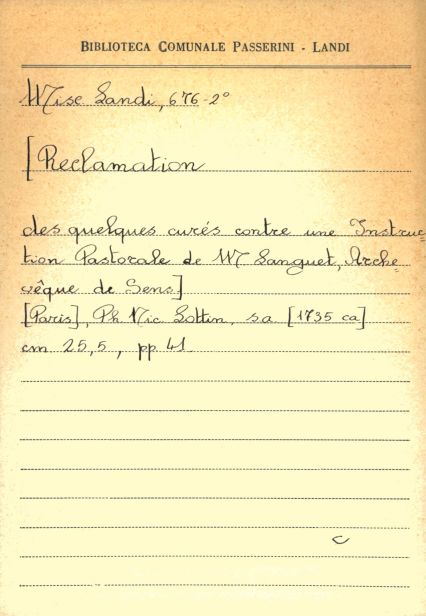 BIBLIOTECA COMUNALE PASSERINI - LANDI
Misc Landi, 676-2°
[Reclamation
des quelques curés contre une Instruc-
tion Pastorale de M Languet, Arche-
vêque de Sens]
[Paris], Ph Nic Lottin, s a [1735 ca]
cm 25,5, pp 41.
C